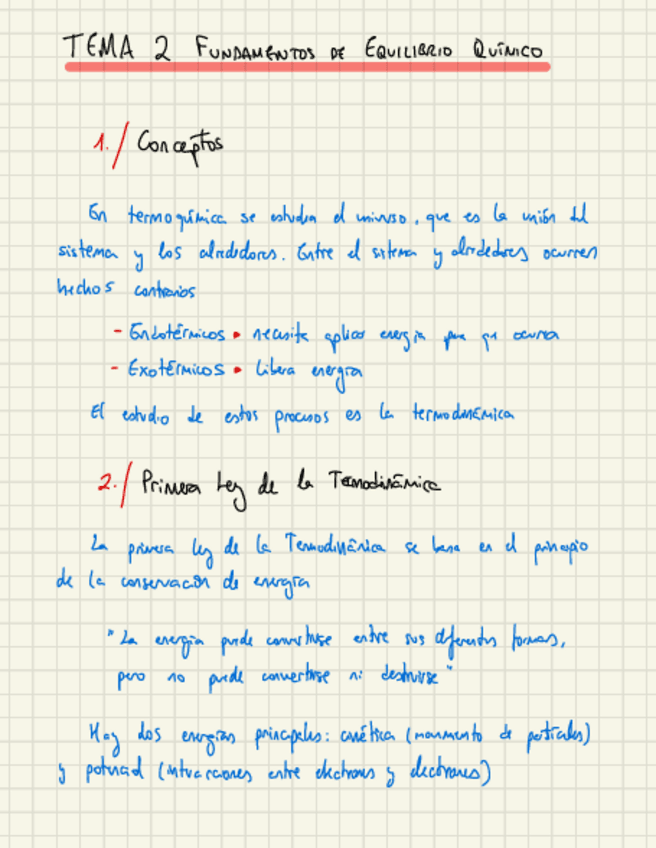 TEMA 2 FUNDAMENTOS DE EQUILIBRIO QUÍMICO
1./ Conceptos
En termoquímica se estudia el universo, que es la unión del
sistema y los alrededores. Entre el sistema y alrededores ocurren
hechos contrarios
- Endotérmicos • necesita aplicar energía para que ocurra
- Exotérmicos • libera energía
El estudio de estos procesos es la termodinámica
2./ Primera Ley de la Temodinámica
La primera ley de la Termodinámica se basa en el principio
de la conservación de energía
"La energía puede convertirse entre sus diferentes formas,
pero no puede convertirse ni destruirse"
Hay dos energías principales: cinética (movimiento de partículas)
y potencial (interacciones entre electrones y electrones)